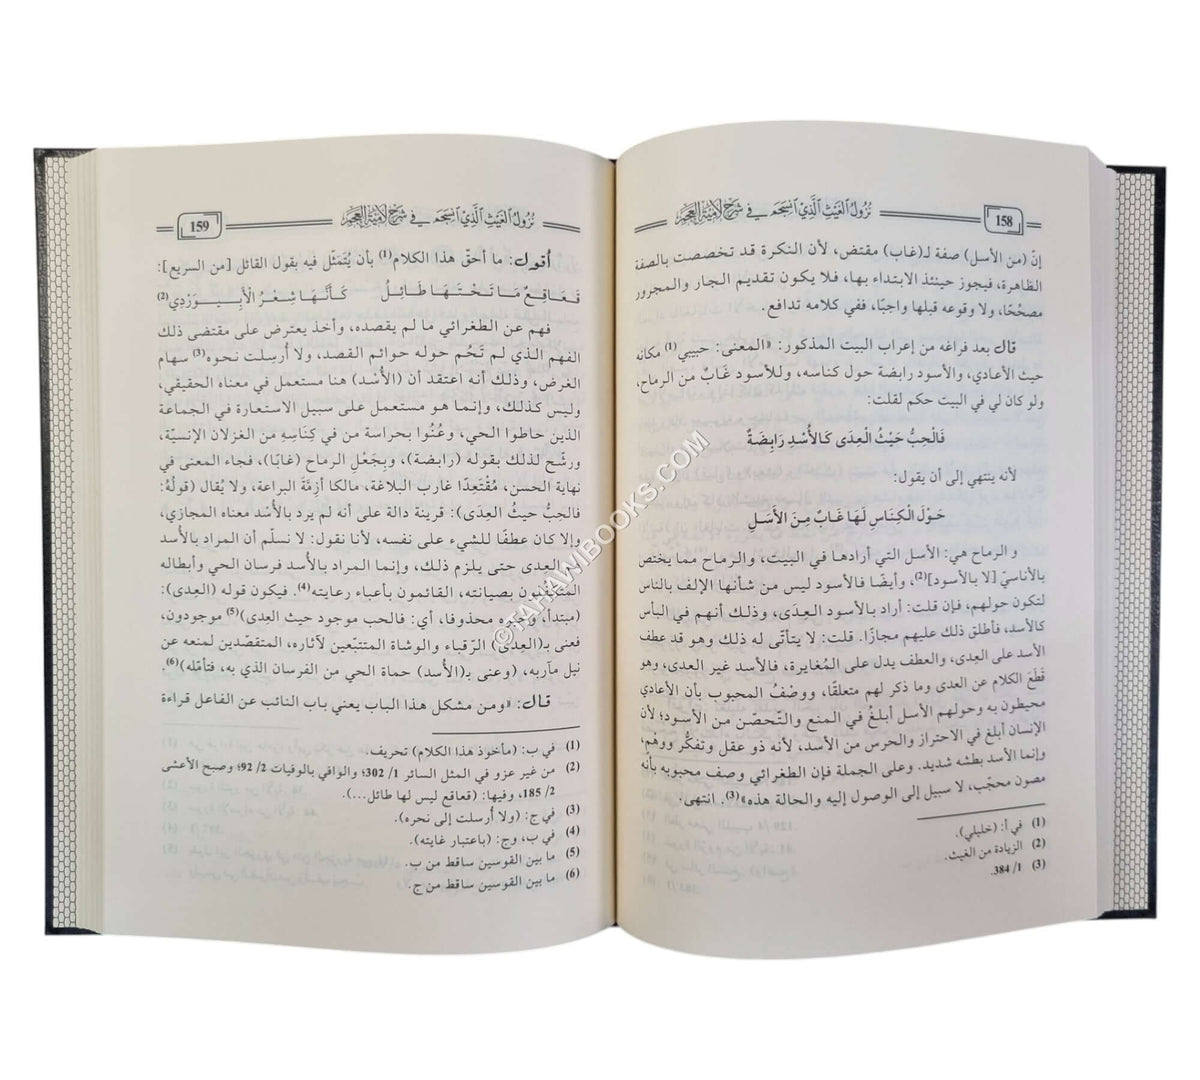 158
نُزُولُ الغَيْثِ الَّذِي انْسَجَمَ فِي شَرْحِ لَامِيَّةِ العَجَمِ
إنّ (من الأسل) صفة لـ(غاب) مقتض، لأن النكرة قد تخصصت بالصفة
الظاهرة، فيجوز حينئذ الابتداء بها، فلا يكون تقديم الجار والمجرور
مصحّحًا، ولا وقوعه قبلها واجبًا، ففي كلامه تدافع.
قال بعد فراغه من إعراب البيت المذكور: «المعنى: حبيبي(1) مكانه
حيث الأعادي، والأسود رابضة حول كناسه، وللأسود غَابٌ من الرماح،
ولو كان لي في البيت حكم لقلت:
فَالْحِبُّ حَيْثُ الْعِدَى كَالأُسْدِ رَابِضَةٌ
لأنه ينتهي إلى أن يقول:
حَوْلَ الْكِنَاسِ لَهَا غَابٌ مِنَ الأَسَلِ
و الرماح هي: الأسل التي أرادها في البيت، والرماح مما يختص
بالأناسيّ [لا بالأسود](2)، وأيضًا فالأسود ليس من شأنها الإلف بالناس
لتكون حولهم، فإن قلت: أراد بالأسود العِدَى، وذلك أنهم في البأس
كالأسد، فأطلق ذلك عليهم مجازًا. قلت: لا يتأتّى له ذلك وهو قد عطف
الأسد على العِدى، والعطف يدل على المُغايرة، فالأسد غير العدى، وهو
قَطَعَ الكلام عن العدى وما ذكر لهم متعلقًا، ووصْفُ المحبوب بأن الأعادي
محيطون به وحولهم الأسل أبلغُ في المنع والتّحصّن من الأسود؛ لأن
الإنسان أبلغ في الاحتراز والحرس من الأسد، لأنه ذو عقل وتفكّر ووهم،
وإنما الأسد بطشه شديد. وعلى الجملة فإن الطغرائي وصف محبوبه بأنه
مصون محجّب، لا سبيل إلى الوصول إليه والحالة هذه»(3). انتهى.
(1) في أ: (خليلي).
(2) الزيادة من الغيث.
(3) 1/ 384.
نُزُولُ الغَيْثِ الَّذِي انْسَجَمَ فِي شَرْحِ لَامِيَّةِ العَجَمِ
159
أقول: ما أحقّ هذا الكلام(1) بأن يُتَمَثّل فيه بقول القائل [من السريع]:
قَعَاقِعٌ مَا تَحْتَهَا طَائِلُ كَأَنَّهَا شِعْرُ الأَبِيوَرْدِي(2)
فهم عن الطغرائي ما لم يقصده، وأخذ يعترض على مقتضى ذلك
الفهم الذي لم تَحُم حوله حوائم القصد، ولا أُرسِلت نحوه(3) سهام
الغرض، وذلك أنه اعتقد أن (الأُسْد) هنا مستعمل في معناه الحقيقي،
وليس كذلك، وإنما هو مستعمل على سبيل الاستعارة في الجماعة
الذين حاطوا الحي، وعُنُوا بحراسة من في كِنَاسِهِ من الغزلان الإنسيّة،
ورشّح لذلك بقوله (رابضة)، وبجَعْلِ الرماح (غابًا)، فجاء المعنى في
نهاية الحسن، مُقْتَعِدًا غارب البلاغة، مالكا أزِمَّةَ البراعة، ولا يُقال (قولُهُ:
فالحِبُّ حيثُ العِدَى): قرينة دالة على أنه لم يرد بالأُسْد معناه المجازي،
وإلا كان عطفًا للشيء على نفسه، لأنا نقول: لا نسلّم أن المراد بالأُسد
العِدى حتى يلزم ذلك، وإنما المراد بالأُسد فرسان الحي وأبطاله
بصيانته، القائمون بأعباء رعايته(4). فيكون قوله (العِدى):
(مبتدأ، وخبره محذوفا، أي: فالحب موجود حيث العِدى)(5) موجودون،
فعنى بـ(العِدَى) الرّقباء والوشاة المتتبّعين لآثاره، المتقصّدين لمنعه عن
نيل مآربه، (وعنى بـ(الأُسد) حماة الحي من الفرسان الذي به، فتأمّله)(6).
قال: «ومن مشكل هذا الباب يعني باب النائب عن الفاعل قراءة
(1) في ب: (مأخوذ هذا الكلام) تحريف.
(2) من غير عزو في المثل السائر 1/ 302؛ والوافي بالوفيات 2/ 92؛ وصبح الأعشى
2/ 185، وفيها: (قعاقع ليس لها طائل...).
(3) في ج: (ولا أُرسلت إلى نحره).
(4) في ب، وج: (باعتبار غايته).
(5) ما بين القوسين ساقط من ب.
(6) ما بين القوسين ساقط من ج.
©TAHAWIBOOKS.COM